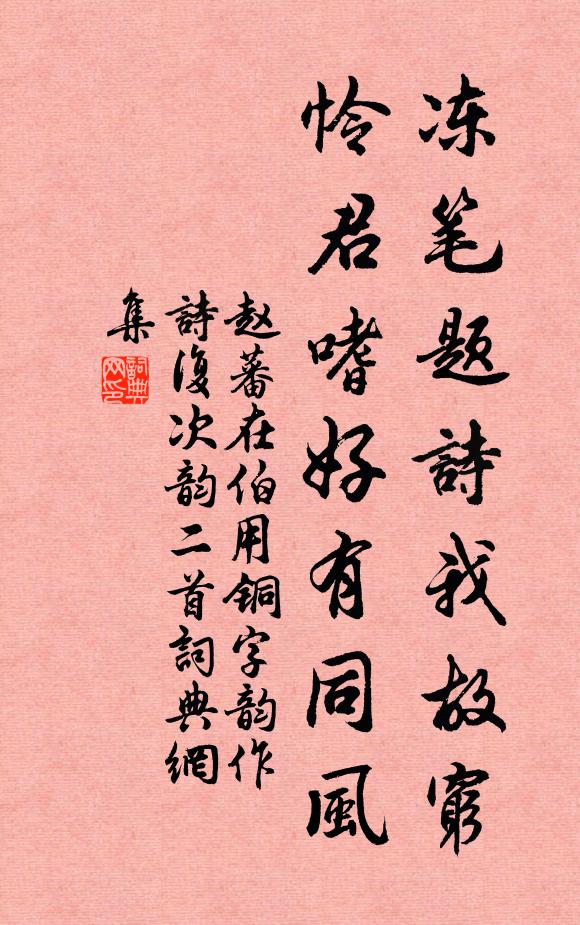 冻笔题詩我故窮
怜君嗜好有同風
赵蕃在伯用铜字韵作
詩復次韵二首詞典網
集
詞典
网印